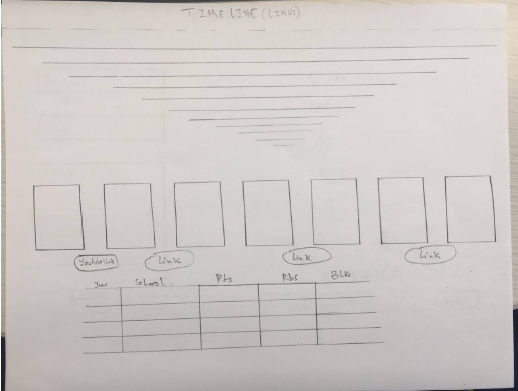 TIME LINE (LINK)
Youtube link Link Link Link
Year School Pts Rbs Blks